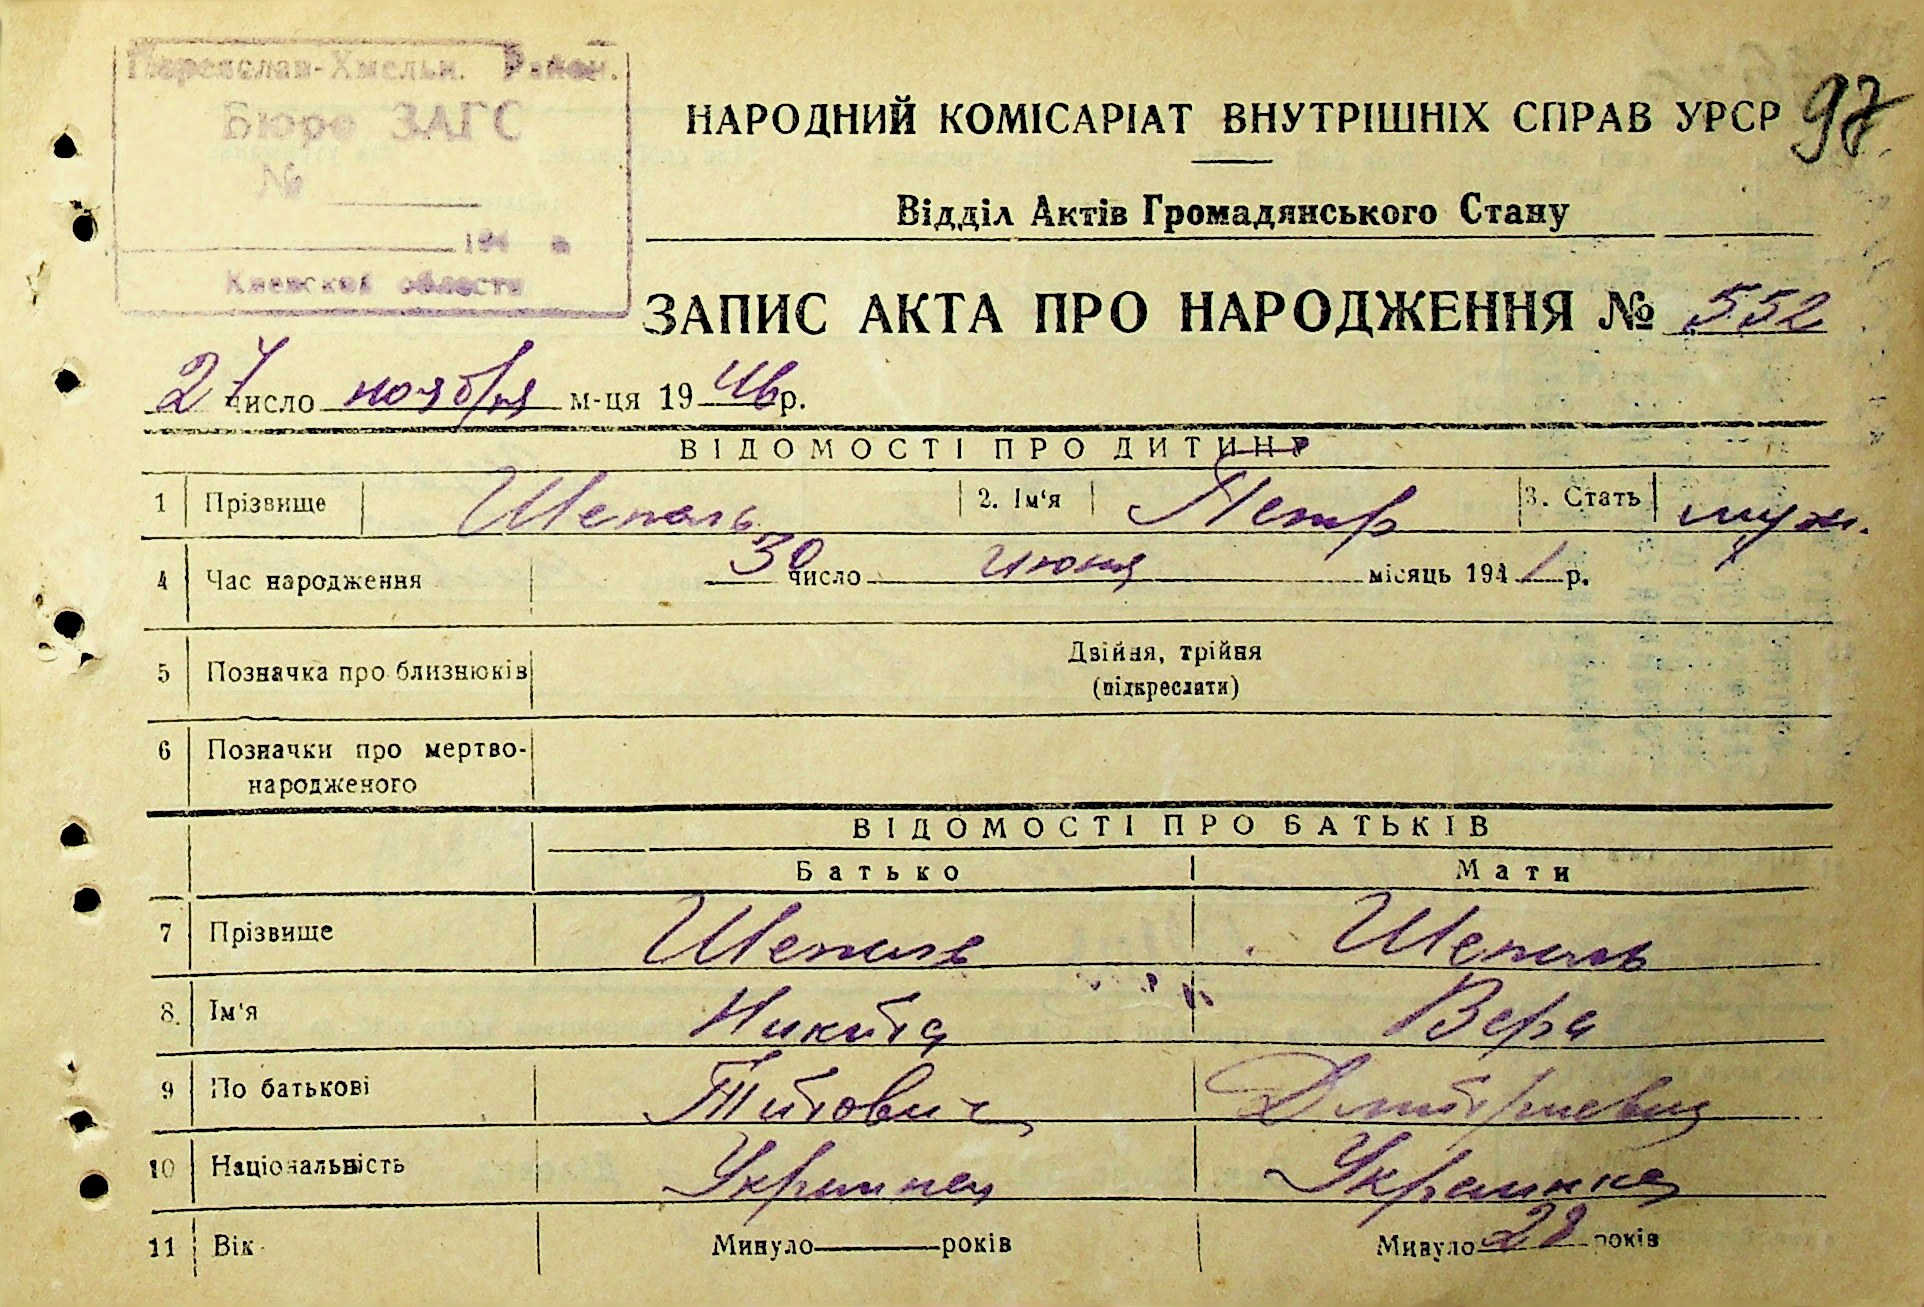 Переяслав-Хмельн. Район.
Бюро ЗАГС
№
194 г.
Киевской области
97
НАРОДНИЙ КОМІСАРІАТ ВНУТРІШНІХ СПРАВ УРСР
Відділ Актів Громадянського Стану
ЗАПИС АКТА ПРО НАРОДЖЕННЯ № 552
27 число ноября м-ця 1946 р.
ВІДОМОСТІ ПРО ДИТИНУ
1 Прізвище Шепель 2. Ім'я Петр 3. Стать муж.
4 Час народження 30 число июня місяць 1941 р.
5 Позначка про близнюків Двійня, трійня
(підкреслати)
6 Позначки про мертво-
народженого
ВІДОМОСТІ ПРО БАТЬКІВ
Батько Мати
7 Прізвище Шепель Шепель
8. Ім'я Никита Вера
9 По батькові Титович Дмитриевна
10 Національність Украинец Украинка
11 Вік Минуло років Минуло 28 років